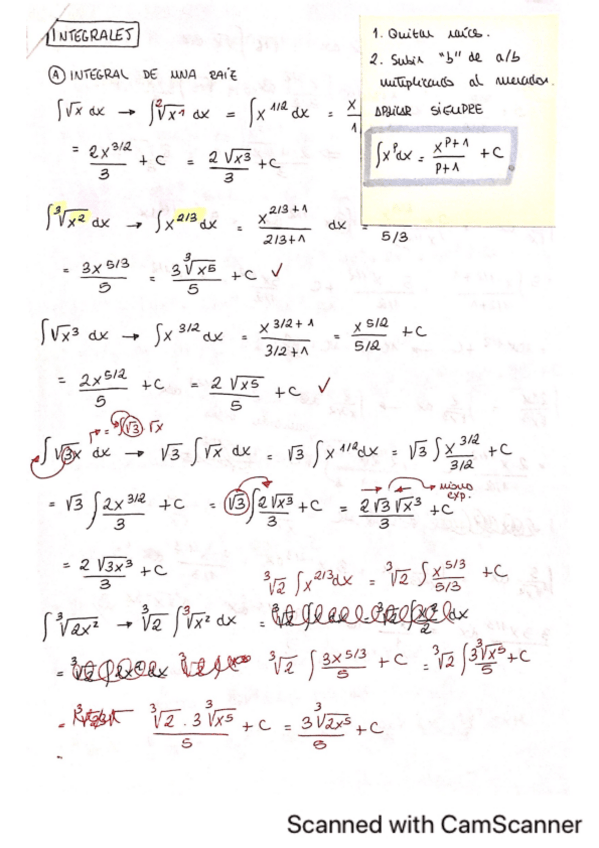 INTEGRALES
1. Quitar raíces.
2. Subir "b" de a/b
multiplicando al numerador.
APLICAR SIEMPRE
∫x^p dx = x^(p+1)/(p+1) + C
Ⓐ INTEGRAL DE UNA RAIZ
∫√x dx → ∫²√x¹ dx = ∫x^(1/2) dx = x
1
= 2x^(3/2)/3 + C = 2√x³/3 + C
∫³√x² dx → ∫x^(2/3) dx = x^(2/3+1)/(2/3+1) dx = /(5/3)
= 3x^(5/3)/5 = 3 ³√x⁵/5 + C ✓
∫√x³ dx → ∫x^(3/2) dx = x^(3/2+1)/(3/2+1) = x^(5/2)/(5/2) + C
= 2x^(5/2)/5 + C = 2√x⁵/5 + C ✓
= ∫√3·√x
∫√3x dx → √3 ∫√x dx = √3 ∫x^(1/2) dx = √3 ∫x^(3/2)/(3/2) + C
= √3 ∫2x^(3/2)/3 + C = √3 ∫2√x³/3 + C = 2√3√x³/3 + C
mismo
exp.
= 2√3x³/3 + C
³√2 ∫x^(2/3) dx = ³√2 ∫x^(5/3)/(5/3) + C
∫³√2x² → ³√2 ∫³√x² dx =
= ³√2 ∫3x^(5/3)/5 + C = ³√2 ∫3 ³√x⁵/5 + C
= ³√2 · 3 ³√x⁵/5 + C = 3 ³√2x⁵/5 + C
Scanned with CamScanner